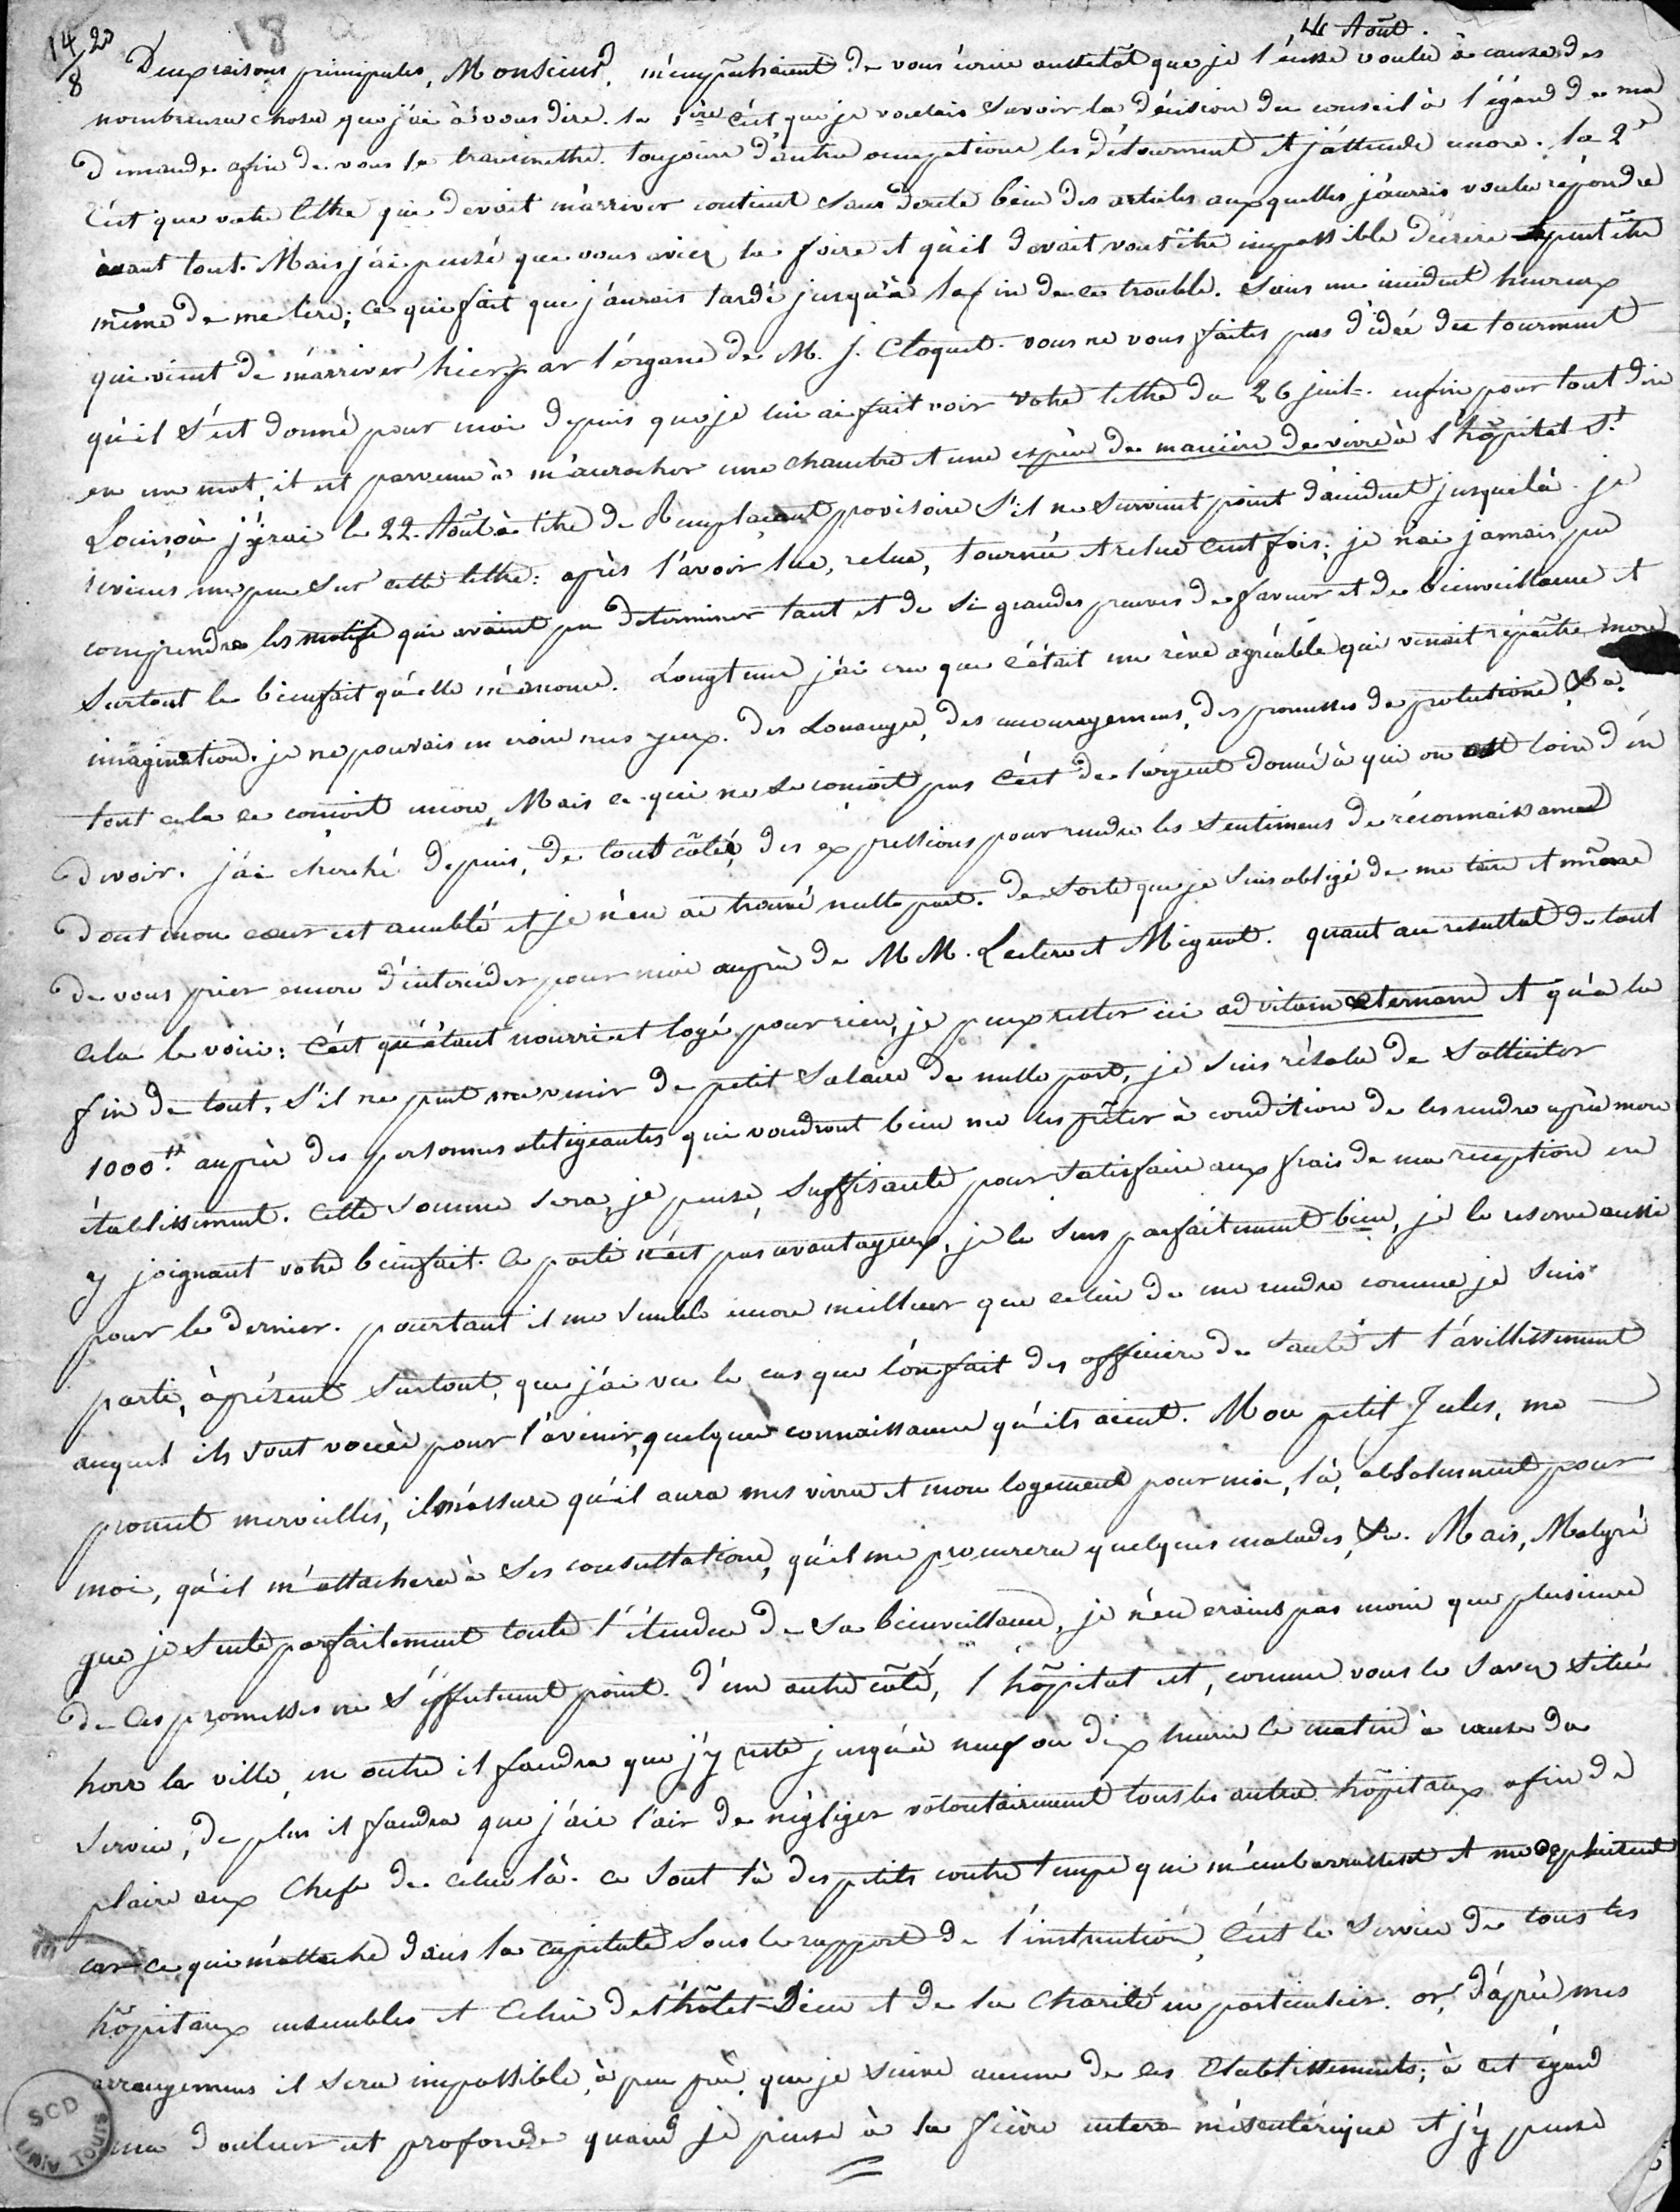 14/8 20
18
4 Août.
Deux raisons principales, Monsieur, m'empêchaient de vous écrire aussitôt que je l'eusse voulu à cause des
nombreuses choses que j'ai à vous dire. la 1ère c'est que je voulais savoir la décision du conseil à l'égard de ma
demande afin de vous la transmettre. toujours d'autres occupations les détournent et j'attends encore. la 2e
C'est que votre lettre qui devait m'arriver contient sans doute bien des articles auxquelles j'aurais voulu répondre
avant tout. Mais j'ai pensé que vous aviez la foire et qu'il devait vous être impossible d'écrire et peut être
même de me lire; ce qui fait que j'aurais tardé jusqu'à la fin de ce trouble. Sans un incident heureux
qui vient de m'arriver hier par l'organe de M. J. Cloquet. vous ne vous faites pas d'idée du tourment
qu'il s'est donné pour moi depuis que je lui ai fait voir votre lettre du 26 juil. enfin pour tout dire
en un mot, il est parvenu à m'accrocher une chambre et une espèce de manière de vivre à l'hôpital St
Louis, où j'irai le 22 Août à titre de Remplaçant provisoire s'il ne survient point d'accident jusque là. je
reviens un peu sur cette lettre: après l'avoir lue, relue, tournée et relue cent fois; je n'ai jamais pu
comprendre les motifs qui avaient pu determiner tant et de si grandes preuves de faveur et de bienveillance et
surtout le bienfait qu'elle m'anonce. Longtems j'ai cru que c'était un rêve agréable qui venait repaître mon
imagination. je ne pouvais en croire mes yeux. Des Louanges, des encouragemens, des promesses de protections, &a.
tout cela se conçoit encore, Mais ce qui ne se conçoit pas c'est de l'argent donné à qui on est loin d'en
devoir. j'ai cherché depuis, de tout côtés, des expressions pour rendre les sentimens de réconnaissance
dont mon cœur est accablé et je n'en ai trouvé nulle part. de sorte que je suis obligé de me taire et même
de vous prier encore d'intercéder pour moi auprès de MM. Leclerc et Mignot. quant au resultat de tout
cela le voici: C'est qu'étant nourri et logé pour rien, je peux rester ici ad vitam æternam et qu'à la
fin de tout, s'il ne peut me venir de petit salaire de nulle part, je suis résolu de solliciter
1000tt auprès des personnes obligeantes qui voudront bien me les prêter à condition de les rendre après mon
établissement. Cette somme sera, je pense, suffisante pour satisfaire aux frais de ma reception en
y joignant votre bienfait. Ce parti n'est pas avantageux, je le sens parfaitement bien, je le reserve aussi
pour le dernier. pourtant il me semble encore meilleur que celui de me rendre comme je suis
parti, àprésent surtout, que j'ai vu le cas que l'on fait des officiers de santé et l'avillissement
auquel ils sont voués pour l'avenir, quelques connaissances qu'ils aient. Mon petit Jules, me
promet merveilles, il m'assure qu'il aura mes vivres et mon logement pour moi, là, absolument pour
moi, qu'il m'attachera à ses consultations, qu'il me procurera quelques malades, &a. Mais, Malgré
que je sente parfaitement toute l'étendue de sa bienveillance, je n'en crains pas moins que plusieurs
de ces promesses ne s'éffectuent point. d'un autre côté, l'hôpital est, comme vous le savez situé
hors la ville, en outre il faudra que j'y reste jusqu'à neuf ou dix heures le matin à cause du
service, de plus il faudra que j'aie l'air de négliger volontairement tous les autres hôpitaux afin de
plaire aux Chefs de celui là. ce sont là des petits contre temps qui m'embarrassent et me deplaisent
car ce qui m'attache dans la capitale sous le rapport de l'instruction, c'est le service de tous les
hôpitaux ensembles et Celui de l'hôtel Dieu et de la Charité en particulier. or, d'après mes
arrangemens il sera impossible, à peu près, que je suive aucun de ces Etablissements; à cet égard
ma douleur est profonde quand je pense à la fièvre entero-mésentérique et j'y pense
SCD
UNIV TOURS